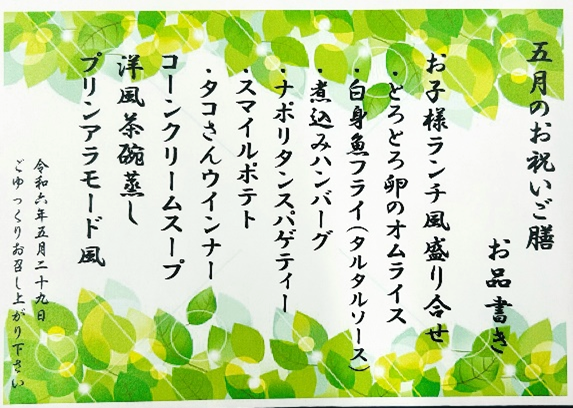 五月のお祝いご膳
お品書き
お子様ランチ風盛り合せ
・とろとろ卵のオムライス
・白身魚フライ(タルタルソース)
・煮込みハンバーグ
・ナポリタンスパゲティー
・スマイルポテト
・タコさんウインナー
コーンクリームスープ
洋風茶碗蒸し
プリンアラモード風
令和六年五月二十九日
ごゆっくりお召し上がり下さい